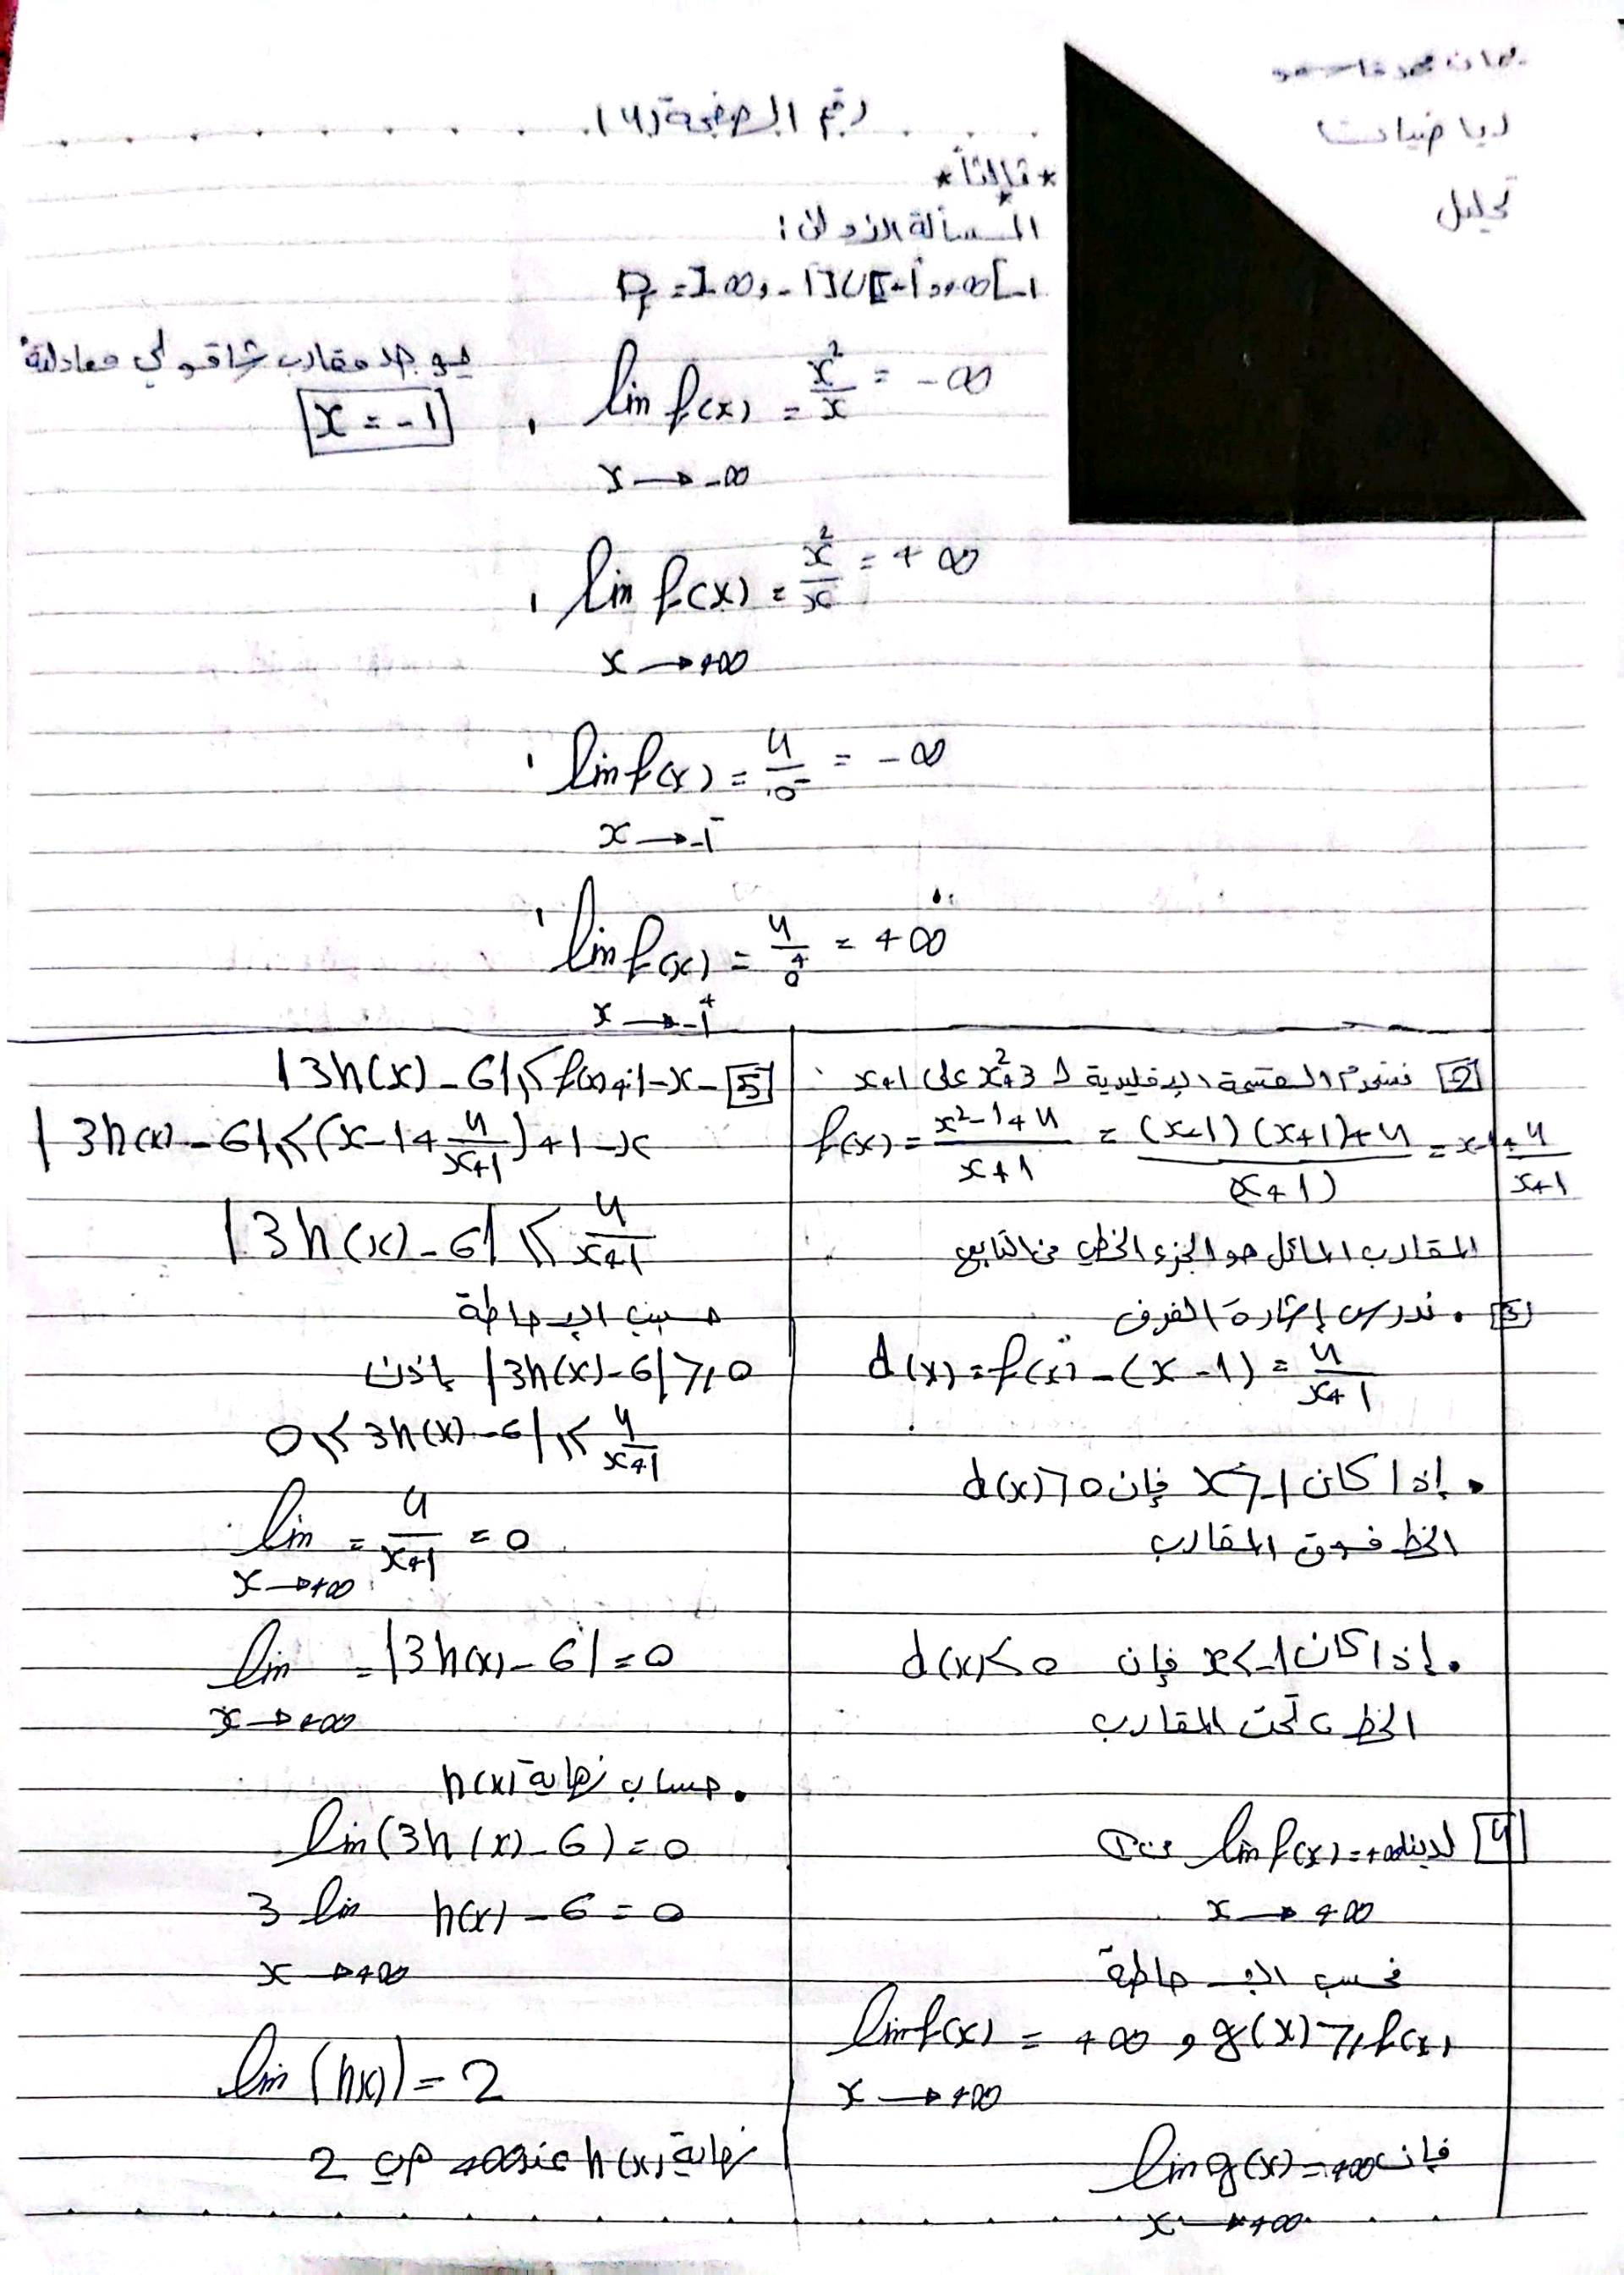 رياضيات
تحليل
رقم الصفحة (4)
* ثالثاً *
المسألة الأولى:
1- D_f = ]-∞, -1[ ∪ ]-1, +∞[
lim f(x) = x²/x = -∞
x → -∞
يوجد مقارب شاقولي معادلته
x = -1
lim f(x) = x²/x = +∞
x → +∞
lim f(x) = 4/0⁻ = -∞
x → -1⁻
lim f(x) = 4/0⁺ = +∞
x → -1⁺
[2] نستخدم القسمة الإقليدية لـ x²+3 على x+1
f(x) = (x²-1+4)/(x+1) = ((x-1)(x+1)+4)/(x+1) = x-1+4/(x+1)
المقارب المائل هو الجزء الخطي من التابع
[3] • ندرس إشارة الفرق
d(x) = f(x) - (x-1) = 4/(x+1)
• إذا كان x > -1 فإن d(x) > 0
الخط فوق المقارب
• إذا كان x < -1 فإن d(x) < 0
الخط تحت المقارب
[4] لدينا lim f(x) = +∞
x → +∞
فحسب الإحاطة
lim f(x) = +∞ , g(x) ≥ f(x)
x → +∞
فإن lim g(x) = +∞
x → +∞
[5] - |3h(x) - 6| ≤ f(x) + 1 - x
|3h(x) - 6| ≤ (x - 1 + 4/(x+1)) + 1 - x
|3h(x) - 6| ≤ 4/(x+1)
حسب الإحاطة
|3h(x) - 6| ≥ 0 إذن
0 ≤ 3h(x) - 6| ≤ 4/(x+1)
lim = 4/(x+1) = 0
x → +∞
lim = |3h(x) - 6| = 0
x → +∞
• حساب نهاية h(x)
lim (3h(x) - 6) = 0
3 lim h(x) - 6 = 0
x → +∞
lim (h(x)) = 2
نهاية h(x) عند +∞ هي 2